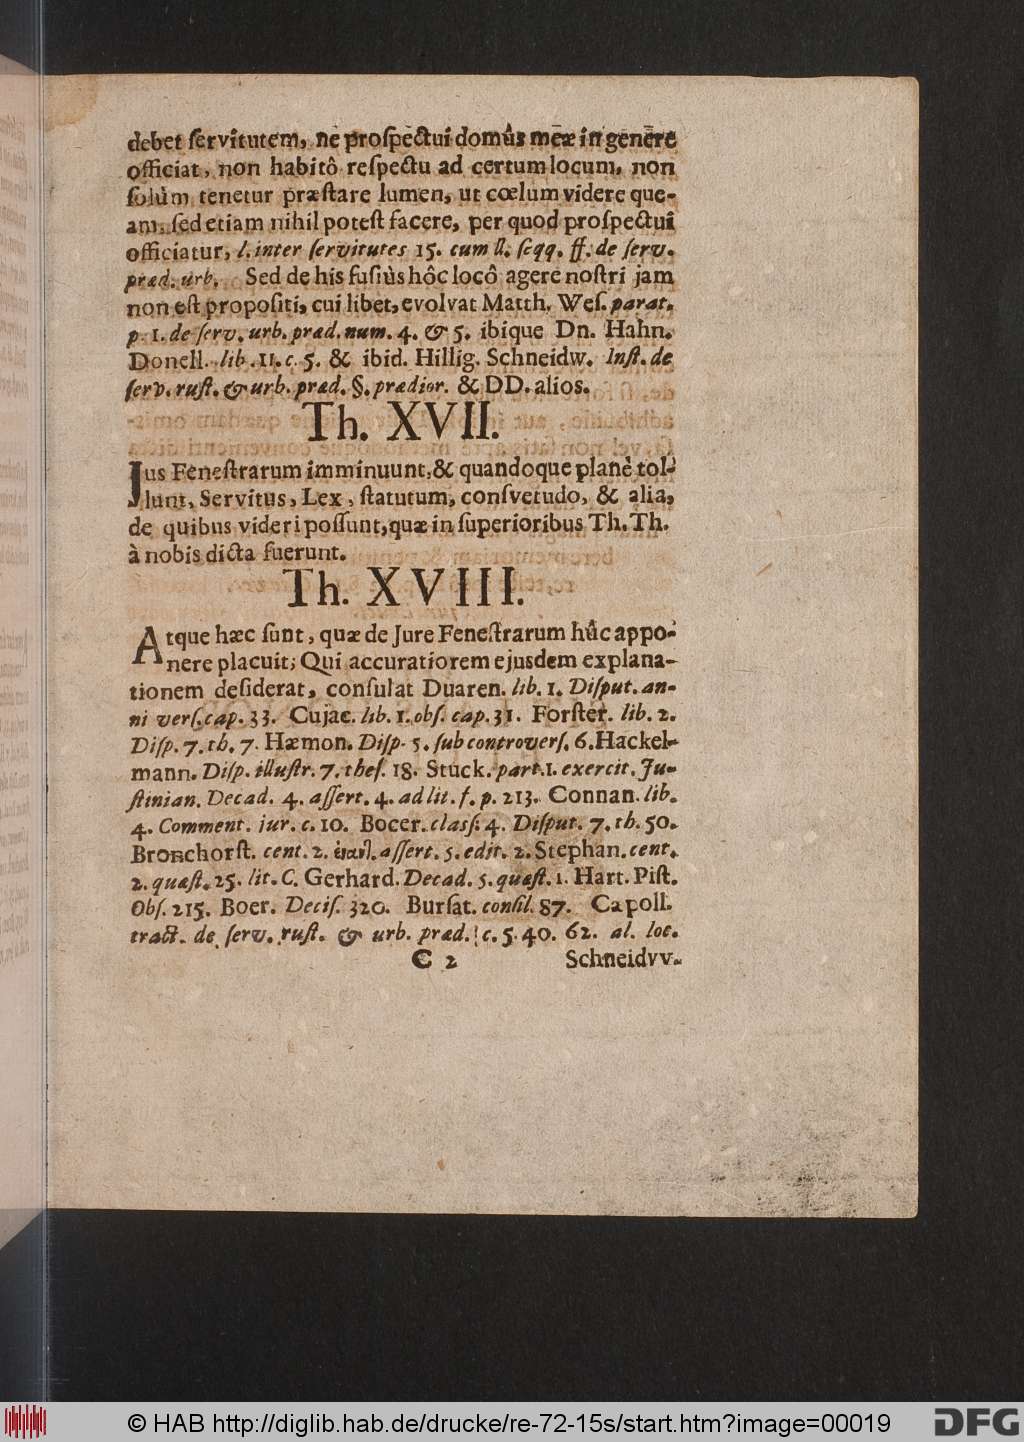 debet ſervîtutem, nè proſpectui domûs meæ in genere
officiat, non habitô reſpectu ad certum locum, non
ſolùm tenetur præſtare lumen, ut cœlum videre que-
am, ſed etiam nihil poteſt facere, per quod proſpectui
officiatur, l. inter ſervitutes 15. cum ll. ſeqq. ff. de ſerv.
præd. urb. Sed de his fuſiùs hôc locô agere noſtri jam
non eſt propoſiti, cui libet, evolvat Matth. Weſ. parat.
p. 1. de ſerv. urb. præd. num. 4. & 5. ibique Dn. Hahn.
Donell. lib. 11. c. 5. & ibid. Hillig. Schneidw. Inſt. de
ſerv. ruſt. & urb. præd. §. prædior. & DD. alios.
Th. XVII.
Jus Feneſtrarum imminuunt, & quandoque planè tol-
lunt, Servitus, Lex, ſtatutum, conſvetudo, & alia,
de quibus videri poſſunt, quæ in ſuperioribus Th. Th.
à nobis dicta fuerunt.
Th. XVIII.
Atque hæc ſunt, quæ de Jure Feneſtrarum hûc appo-
nere placuit; Qui accuratiorem ejusdem explana-
tionem deſiderat, conſulat Duaren. lib. 1. Diſput. an-
ni verſ. cap. 33. Cujac. lib. 1. obſ. cap. 31. Forſter. lib. 2.
Diſp. 7. th. 7. Hæmon. Diſp. 5. ſub controverſ. 6. Hackel-
mann. Diſp. illuſtr. 7. theſ. 18. Stuck. part. 1. exercit. Ju-
ſtinian. Decad. 4. aſſert. 4. ad lit. f. p. 213. Connan. lib.
4. Comment. jur. c. 10. Bocer. claſſ. 4. Diſput. 7. th. 50.
Bronchorſt. cent. 2. aſſert. 5. edit. 2. Stephan. cent.
2. quæſt. 25. lit. C. Gerhard. Decad. 5. quæſt. 1. Hart. Piſt.
Obſ. 215. Boer. Deciſ. 320. Burſat. conſil. 87. Capoll.
tract. de ſerv. ruſt. & urb. præd. c. 5. 40. 62. al. loc.
C 2 Schneidvv.
© HAB http://diglib.hab.de/drucke/re-72-15s/start.htm?image=00019
DFG